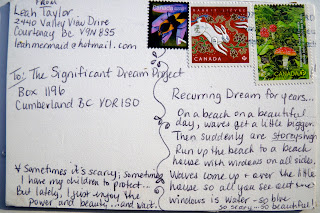 FROM
Leah Taylor
2440 Valley View Drive
Courtenay BC V9N 8S5
leahmermaid@hotmail.com
To: The Significant Dream Project
Box 1196
Cumberland BC V0R 1S0
* Sometimes it's scary; sometimes
I have my children to protect...
But lately, I just enjoy the
power and beauty...and wait.
CANADA
CANADA
Canada
Recurring Dream for years...
On a beach on a beautiful
day, waves get a little bigger.
Then suddenly are storey high
Run up the beach to a beach
house with windows on all sides.
Waves come up + over the little
house so all you see out the
windows is water - so blue
so scary...so beautiful!